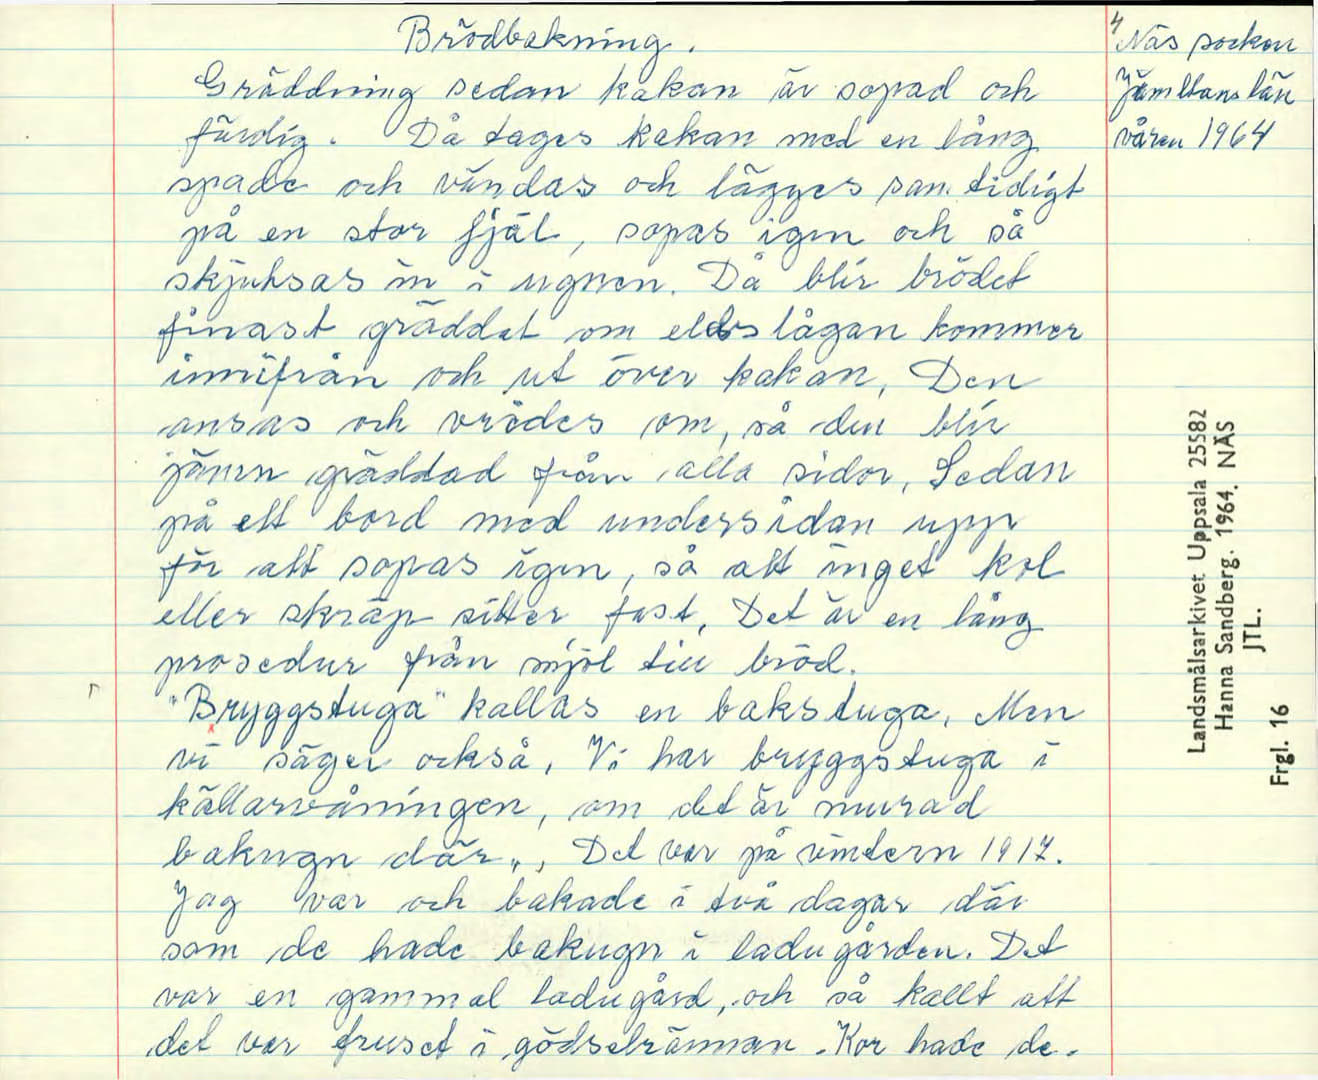 Brödbakning.
Gräddning sedan kakan är sopad och
färdig. Då tages kakan med en lång
spade och vändas och lägges samtidigt
på en stor fjäl, sopas igen och så
skjuhsas in i ugnen. Då blir brödet
finast gräddat om eldslågan kommer
innifrån och ut över kakan, Den
ansas och vrides om, så den blir
jämn gräddad från alla sidor, Sedan
på ett bord med undersidan upp
för att sopas igen, så att inget kol
eller skräp sitter fast, Det är en lång
prosedur från mjöl till bröd.
"Bryggstuga" kallas en bakstuga, Men
vi säger också, Vi har bryggstuga i
källarvåningen, om det är murad
bakugn där", Det var på vintern 1917.
Jag var och bakade i två dagar där
som de hade bakugn i ladugården. Det
var en gammal ladugård, och så kallt att
det var fruset i gödselrännan. Kor hade de.
4
Näs socken
Jämtlans län
våren 1964
Landsmålsarkivet Uppsala 25582
Hanna Sandberg. 1964. NÄS
JTL.
Frgl. 16